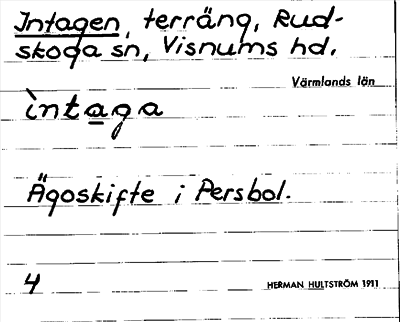 Intagen, terräng, Rud-
skoga sn, Visnums hd.
Värmlands län
ìntaga
Ägoskifte i Persbol.
4
HERMAN HULTSTRÖM 1911